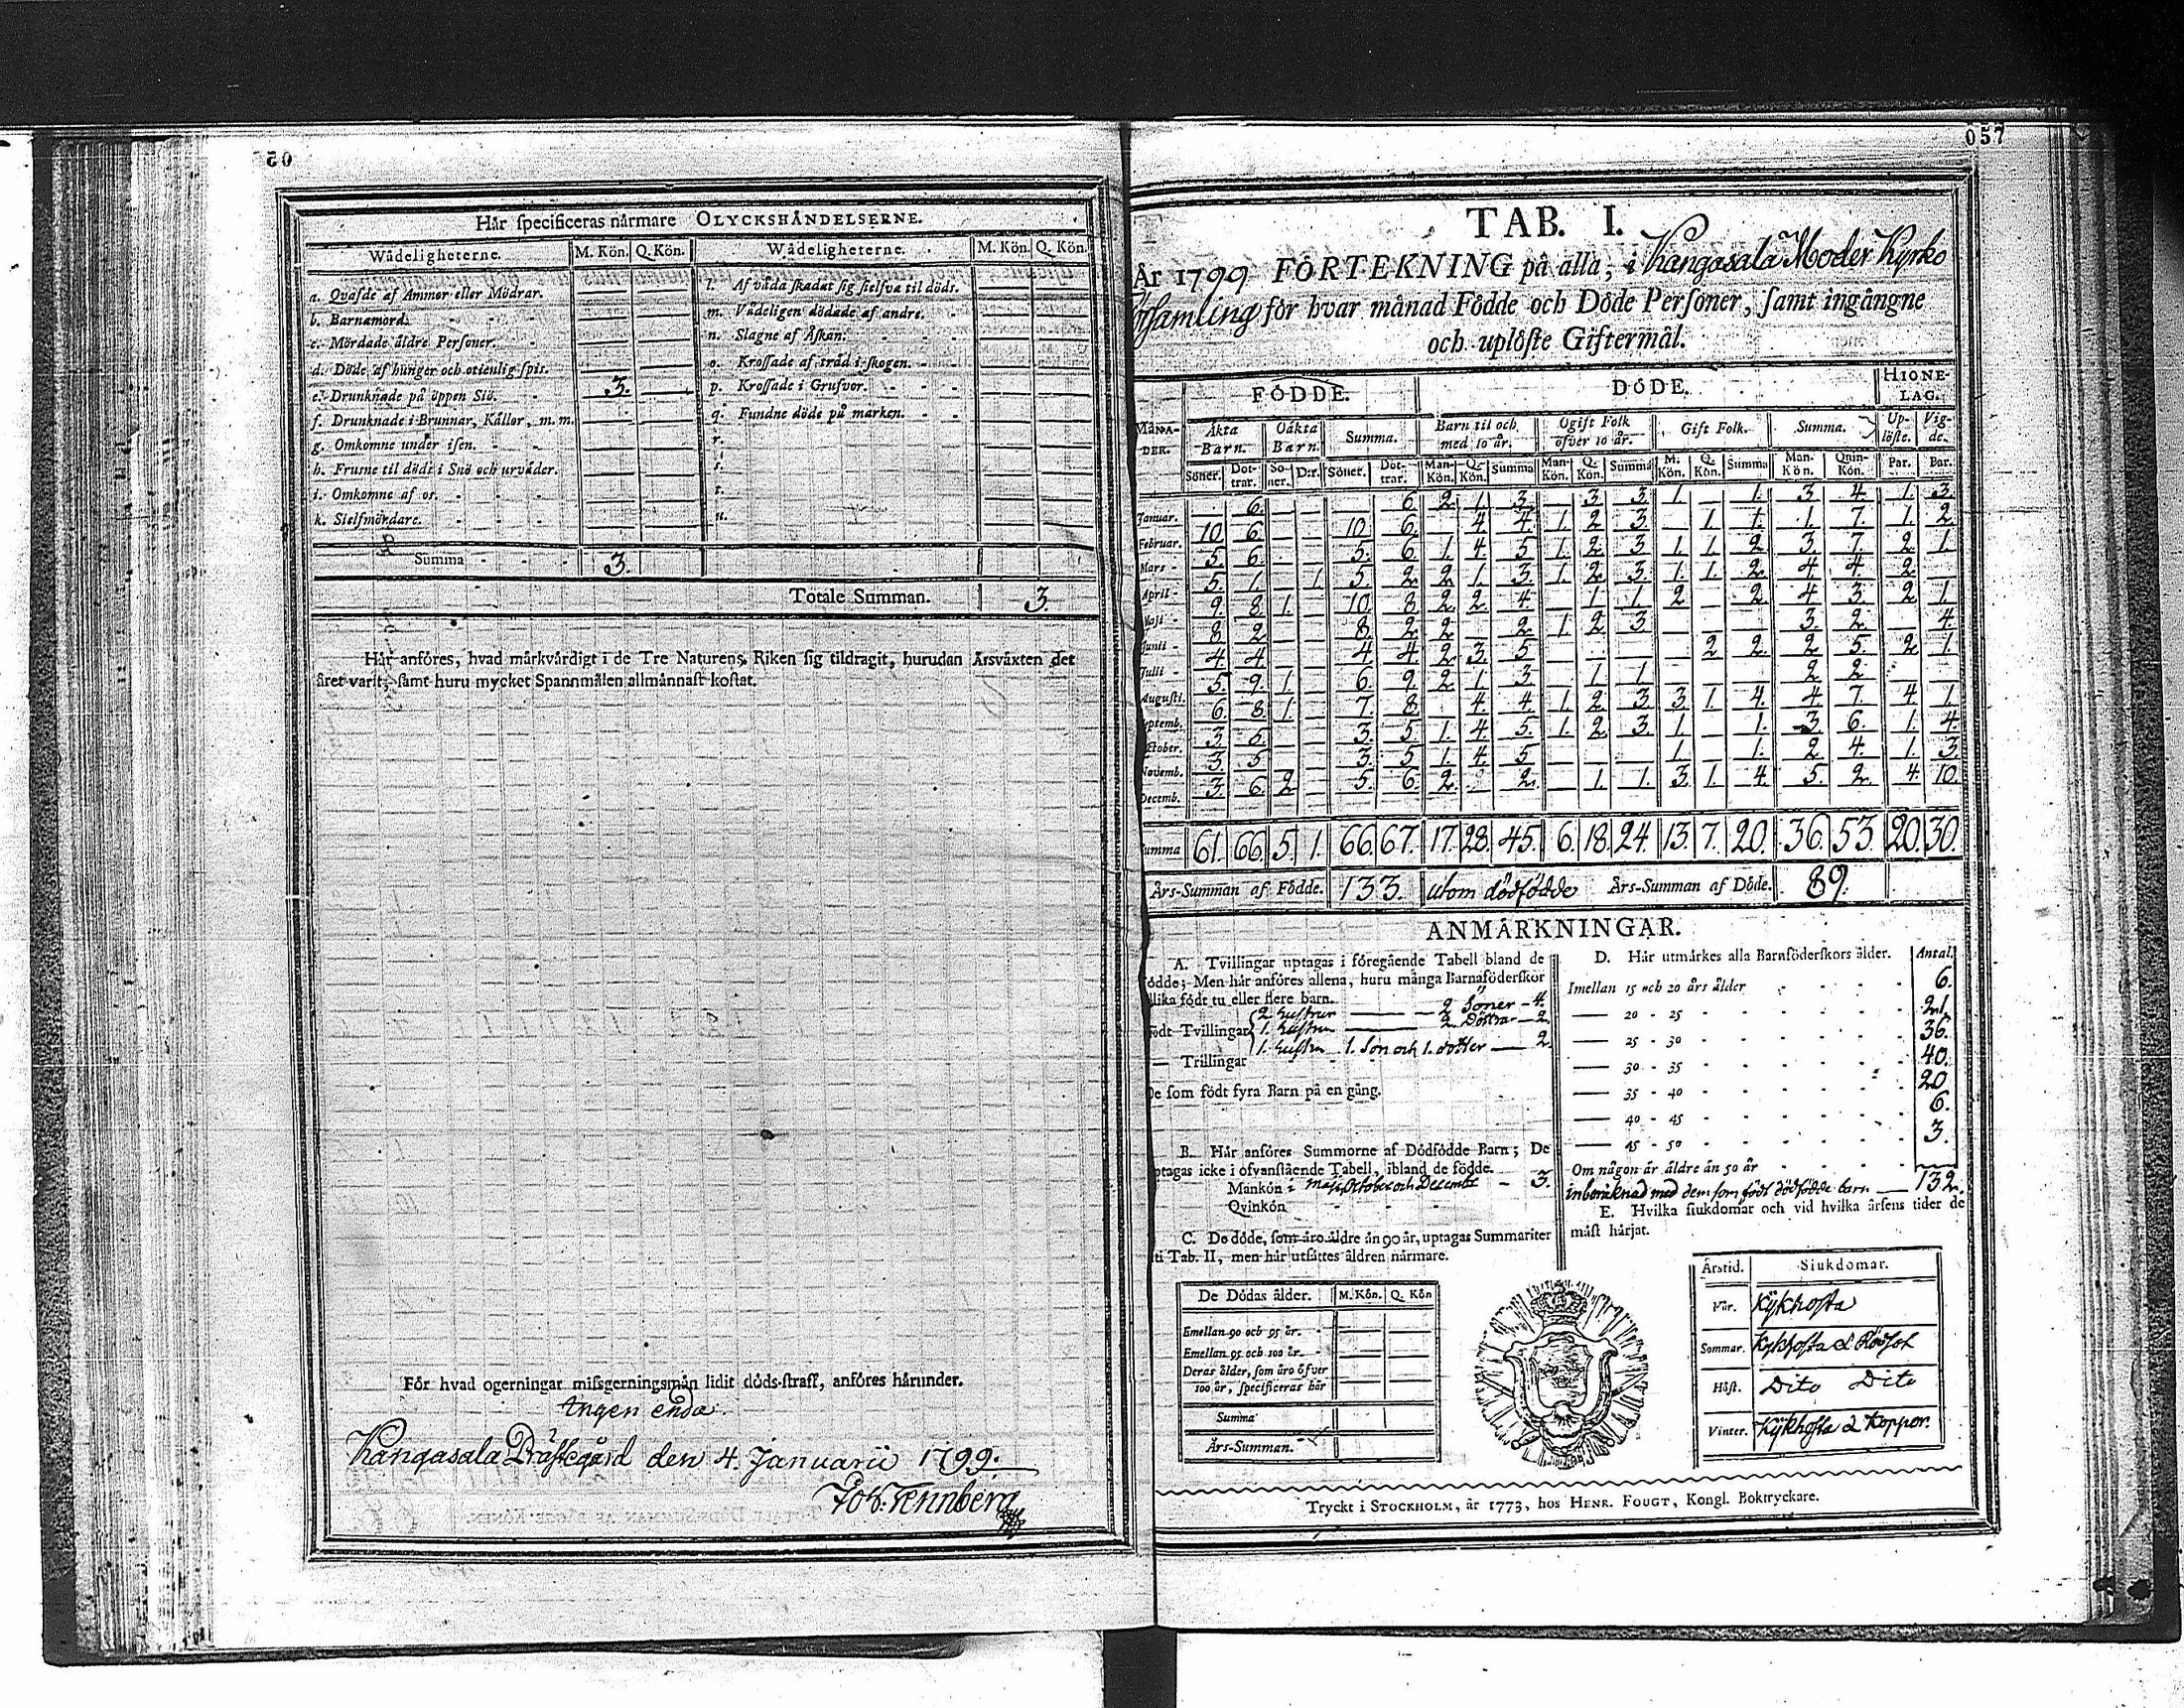 Här specificeras närmare OLYCKSHÄNDELSERNE.
Wådeligheterne. M. Kön. Q. Kön. Wådeligheterne. M. Kön. Q. Kön.
a. Qvafde af Ammor eller Mödrar.
b. Barnamord.
c. Mördade äldre Personer.
d. Döde af hunger och otienlig spis.
e. Drunknade på öppen Siö. 3.
f. Drunknade i Brunnar, Källor, m. m.
g. Omkomne under isen.
h. Frusne til döds i Snö och urväder.
i. Omkomne af os.
k. Sielfmördare.
l. Af våda skadat sig sielfva til döds.
m. Vådeligen dödade af andre.
n. Slagne af Åskan.
o. Krossade af träd i skogen.
p. Krossade i Grufvor.
q. Fundne döde på marken.
r.
s.
t.
u.
Summa 3.
Totale Summan. 3.
Här anföres, hvad märkvärdigt i de Tre Naturens Riken sig tildragit, hurudan Årsväxten det
året varit, samt huru mycket Spannmålen allmännast kostat.
För hvad ogerningar missgerningsmän lidit döds-straff, anföres härunder.
Ingen enda.
Kangasala Prästegård den 4. Januarii 1799.
Joh. Tennberg
057
TAB. I.
År 1799 FÖRTEKNING på alla, i Kangasala Moder Kyrko
församling för hvar månad Födde och Döde Personer, samt ingångne
och uplöste Giftermål.
FÖDDE. DÖDE. HIONELAG.
MÅNADER. Äkta Barn. Oäkta Barn. Summa. Barn til och med 10 år. Ogift Folk öfver 10 år. Gift Folk. Summa. Uplöste. Vigde.
Söner. Dottrar. Söner. D:r. Söner. Dottrar. ManKön. Q. Kön. Summa ManKön. Q. Kön. Summa M. Kön. Q. Kön. Summa ManKön. QvinKön. Par. Par.
Januar. — 6. — — — 6. 2. 1. 3. — 3. 3. 1. — 1. 3. 4. 1. 3.
Februar. 10. 6. — — 10. 6. — 4. 4. 1. 2. 3. — 1. 1. 1. 7. 1. 2.
Mars 5. 6. — — 5. 6. 1. 4. 5. 1. 2. 3. 1. 1. 2. 3. 7. 2. 1.
April 5. 1. — 1. 5. 2. 2. 1. 3. 1. 2. 3. 1. 1. 2. 4. 4. 2. —
Maji 9. 8. 1. — 10. 8. 2. 2. 4. — 1. 1. 2. — 2. 4. 3. 2. 1.
Junii 8. 2. — — 8. 2. 2. — 2. 1. 2. 3. — — — 3. 2. — 4.
Julii 4. 4. — — 4. 4. 2. 3. 5. — — — — 2. 2. 2. 5. 2. 1.
Augusti. 5. 9. 1. — 6. 9. 2. 1. 3. — 1. 1. — — — 2. 2. — —
Septemb. 6. 8. 1. — 7. 8. — 4. 4. 1. 2. 3. 3. 1. 4. 4. 7. 4. 1.
October. 3. 5. — — 3. 5. 1. 4. 5. 1. 2. 3. 1. — 1. 3. 6. 1. 4.
Novemb. 3. 5. — — 3. 5. 1. 4. 5. — — — 1. — 1. 2. 4. 1. 3.
Decemb. 3. 6. 2. — 5. 6. 2. — 2. — 1. 1. 3. 1. 4. 5. 2. 4. 10.
Summa 61. 66. 5. 1. 66. 67. 17. 28. 45. 6. 18. 24. 13. 7. 20. 36. 53. 20. 30.
Års-Summan af Födde. 133. utom dödfödde Års-Summan af Döde. 89.
ANMÄRKNINGAR.
A. Tvillingar uptagas i föregående Tabell bland de
födde; Men här anföres allena, huru många Barnaföderskor
tillika födt tu eller flere barn.
2 hustrur — 2 Söner — 4.
Födt Tvillingar 1. hustru — 2 Döttrar — 2.
1. hustru 1. Son och 1. dotter — 2.
— Trillingar
De som födt fyra Barn på en gång.
B. Här anföres Summorne af Dödfödde Barn; De
uptagas icke i ofvanstående Tabell, ibland de födde.
Mankön i Maji, October och Decembr — 3.
Qvinkön
C. De döde, som äro äldre än 90 år, uptagas Summariter
uti Tab. II, men här utsättes åldren närmare.
De Dödas ålder. M. Kön. Q. Kön
Emellan 90 och 95 år.
Emellan 95 och 100 år.
Deras ålder, som äro öfver
100 år, specificeras här
Summa
Års-Summan.
D. Här utmärkes alla Barnföderskors ålder. Antal.
Imellan 15 och 20 års ålder 6.
— 20 - 25 21.
— 25 - 30 36.
— 30 - 35 40.
— 35 - 40 20.
— 40 - 45 6.
— 45 - 50 3.
Om någon är äldre än 50 år
inberäknad med dem som födt dödfödde barn — 132.
E. Hvilka siukdomar och vid hvilka årsens tider de
mäst härjat.
Årstid. Siukdomar.
Vår. Kykhosta
Sommar. Kykhosta & Rödsot
Höst. Dito Dito
Vinter. Kykhosta & Koppor.
Tryckt i STOCKHOLM, år 1773, hos HENR. FOUGT, Kongl. Boktryckare.